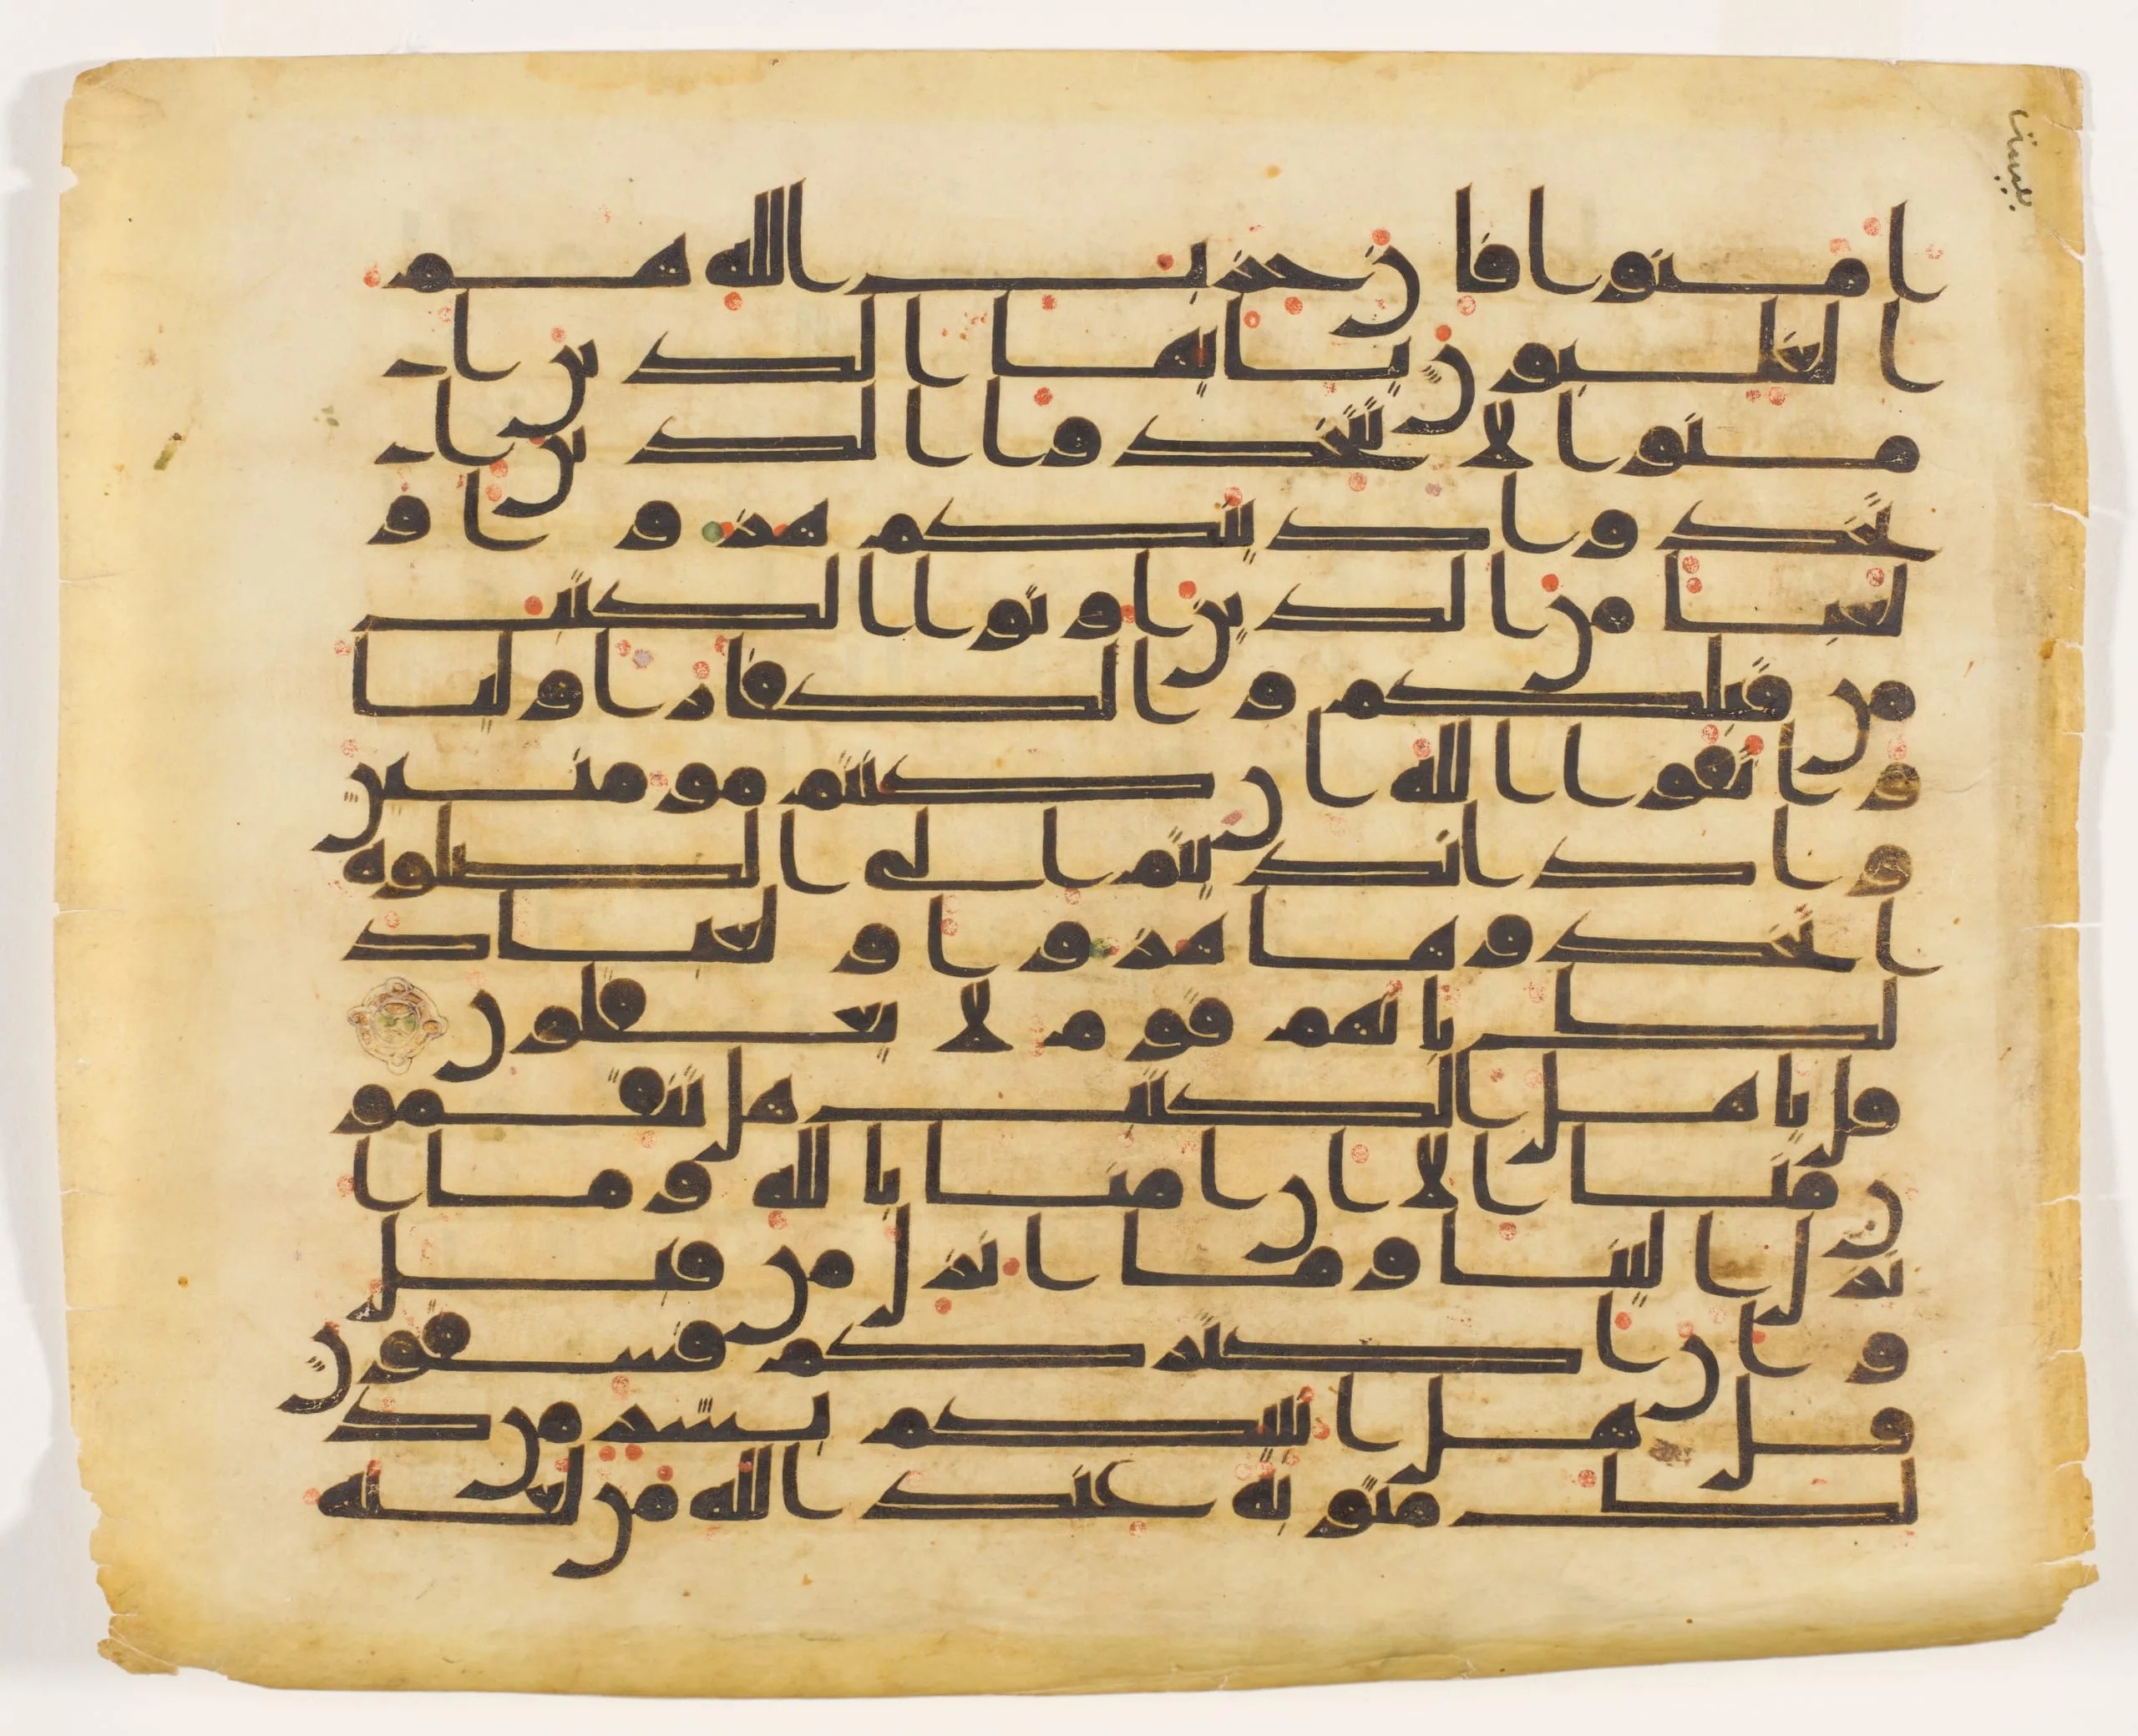 امنوا فان حزب الله هم
الغلبون يايها الذين ا
منوا لا تتخذوا الذين ا
تخذوا دينكم هزوا و
لعبا من الذين اوتوا الكتب
من قبلكم والكفار اوليا
واتقوا الله ان كنتم مومنين
واذا نديتم الى الصلوه
اتخذوها هزوا ولعبا ذ
لك بانهم قوم لا يعقلون
قل ياهل الكتب هل تنقمو
ن منا الا ان امنا بالله وما ا
نزل الينا وما انزل من قبل
وان اكثركم فسقون
قل هل انبيكم بشر من ذ
لك مثوبه عند الله من لعنه